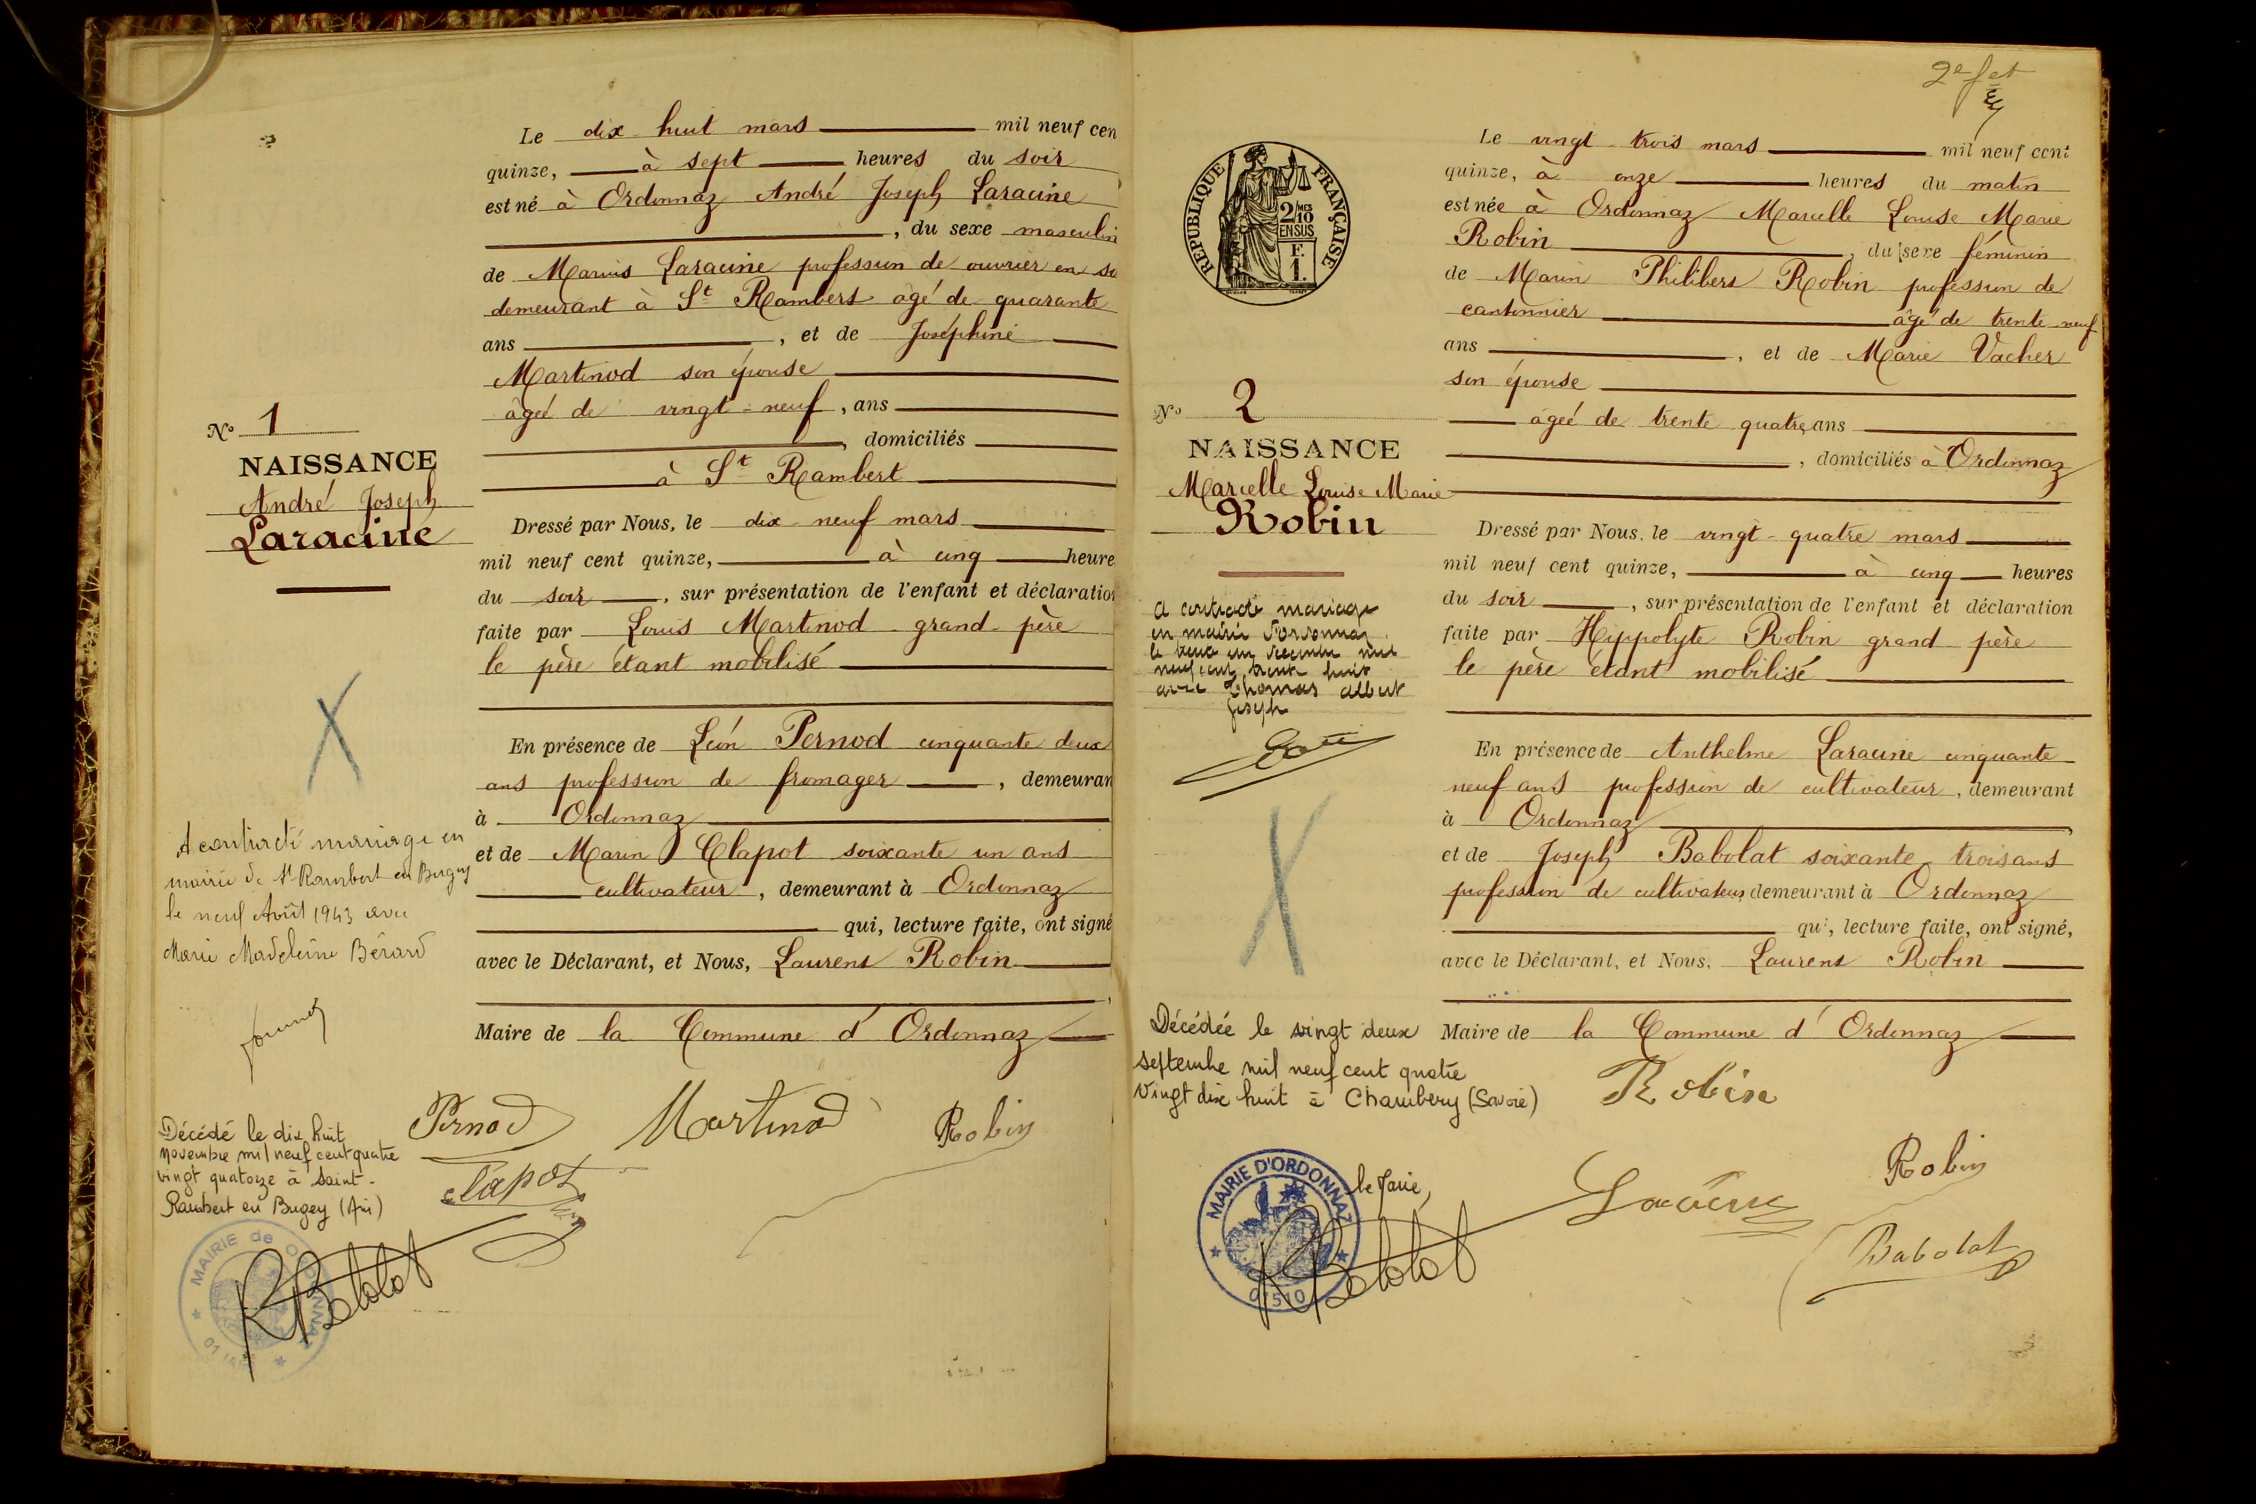 Le dix huit mars mil neuf cen
quinze, à sept heures du soir
est né à Ordonnaz André Joseph Laracine
, du sexe masculin
de Marius Laracine profession de ouvrier en so
demeurant à St Rambert âgé de quarante
ans , et de Joséphine
Martinod son épouse
âgée de vingt-neuf , ans
, domiciliés
à St Rambert
Dressé par Nous, le dix neuf mars
mil neuf cent quinze, à cinq heure
du soir , sur présentation de l'enfant et déclaration
faite par Louis Martinod grand-père
le père étant mobilisé
En présence de Léon Pernod cinquante deux
ans profession de fromager , demeuran
à Ordonnaz
et de Marin Clapot soixante un ans
cultivateur , demeurant à Ordonnaz
qui, lecture faite, ont signé
avec le Déclarant, et Nous, Laurent Robin
Maire de la Commune d'Ordonnaz
Pernod Martinod Robin
Clapot
No 1
NAISSANCE
André Joseph
Laracine
A contracté mariage en
mairie de St Rambert en Bugey
le neuf Août 1943 avec
Marie Madeleine Bérard
Décédé le dix huit
novembre mil neuf cent quatre
vingt quatorze à Saint-
Rambert en Bugey (Ain)
MAIRIE de ORDONNAZ
RBabolat
2e f et
RÉPUBLIQUE FRANÇAISE
2/10 MES
EN SUS
F.
1.
Le vingt-trois mars mil neuf cent
quinze, à onze heures du matin
est née à Ordonnaz Marcelle Louise Marie
Robin , du sexe féminin
de Marin Philibert Robin profession de
cantonnier âgé de trente-neuf
ans , et de Marie Vacher
son épouse
âgée de trente quatre, ans
, domiciliés à Ordonnaz
Dressé par Nous, le vingt-quatre mars
mil neuf cent quinze, à cinq heures
du soir , sur présentation de l'enfant et déclaration
faite par Hippolyte Robin grand père
le père étant mobilisé
En présence de Anthelme Laracine cinquante
neuf ans profession de cultivateur, demeurant
à Ordonnaz
et de Joseph Babolat soixante trois ans
profession de cultivateur, demeurant à Ordonnaz
qui, lecture faite, ont signé,
avec le Déclarant, et Nous, Laurent Robin
Maire de la Commune d'Ordonnaz
Robin
Robin
Laracine
Babolat
No 2
NAISSANCE
Marcelle Louise Marie
Robin
A contracté mariage
en mairie d'Ordonnaz
le trente un décembre mil
neuf cent trente huit
avec Thomas Albert
Joseph
Décédée le vingt deux
septembre mil neuf cent quatre
vingt dix huit à Chambery (Savoie)
le Maire,
MAIRIE D'ORDONNAZ
01510
RBabolat